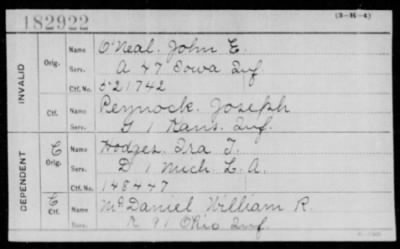 182922
(3-H-4)
INVALID
Orig. Name O'Neal. John E.
Serv. A 47 Iowa Inf
Ctf. No. 521742
Ctf. Name Peynock. Joseph
Serv. G 1 Kans. Inf.
DEPENDENT
C Orig. Name Hodges. Ira T.
Serv. D 1 Mich L. A.
Ctf. No. 148447
C Ctf. Name McDaniel William R.
Serv. 91 Ohio Inf.